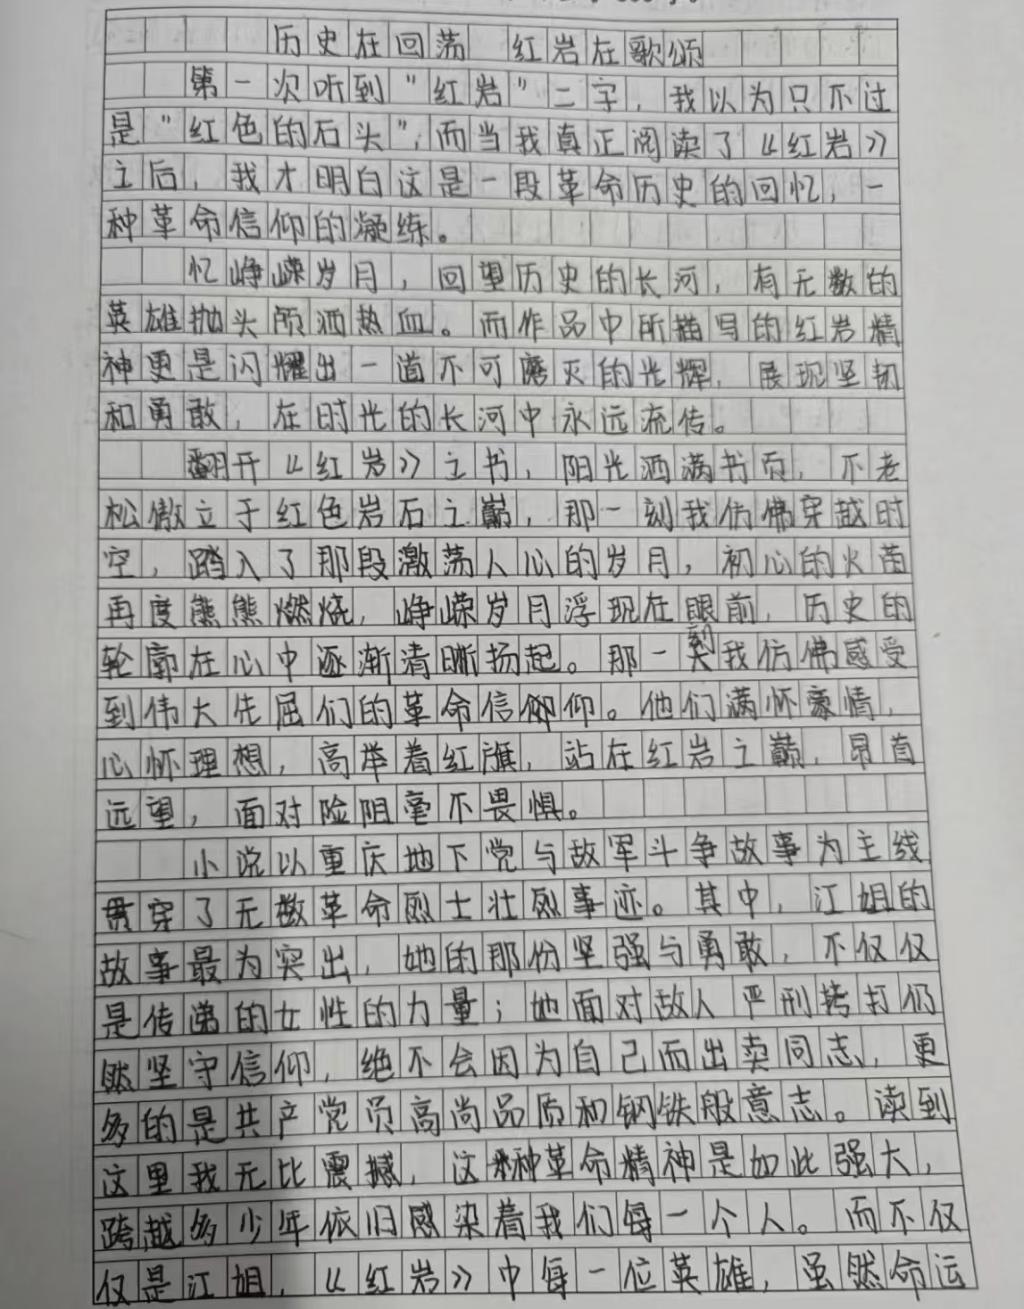 历史在回荡 红岩在歌颂
第一次听到"红岩"二字,我以为只不过
是"红色的石头",而当我真正阅读了《红岩》
之后,我才明白这是一段革命历史的回忆,一
种革命信仰的凝练。
忆峥嵘岁月,回望历史的长河,有无数的
英雄抛头颅洒热血。而作品中所描写的红岩精
神更是闪耀出一道不可磨灭的光辉,展现坚韧
和勇敢,在时光的长河中永远流传。
翻开《红岩》之书,阳光洒满书页,不老
松傲立于红色岩石之巅,那一刻我仿佛穿越时
空,踏入了那段激荡人心的岁月,初心的火苗
再度熊熊燃烧,峥嵘岁月浮现在眼前,历史的
轮廓在心中逐渐清晰扬起。那一刻我仿佛感受
到伟大先屈们的革命信仰。他们满怀豪情,
心怀理想,高举着红旗,站在红岩之巅,昂首
远望,面对险阻毫不畏惧。
小说以重庆地下党与敌军斗争故事为主线
贯穿了无数革命烈士壮烈事迹。其中,江姐的
故事最为突出,她的那份坚强与勇敢,不仅仅
是传递的女性的力量;她面对敌人严刑拷打仍
然坚守信仰,绝不会因为自己而出卖同志,更
多的是共产党员高尚品质和钢铁般意志。读到
这里我无比震撼,这种革命精神是如此强大,
跨越多少年依旧感染着我们每一个人。而不仅
仅是江姐,《红岩》中每一位英雄,虽然命运